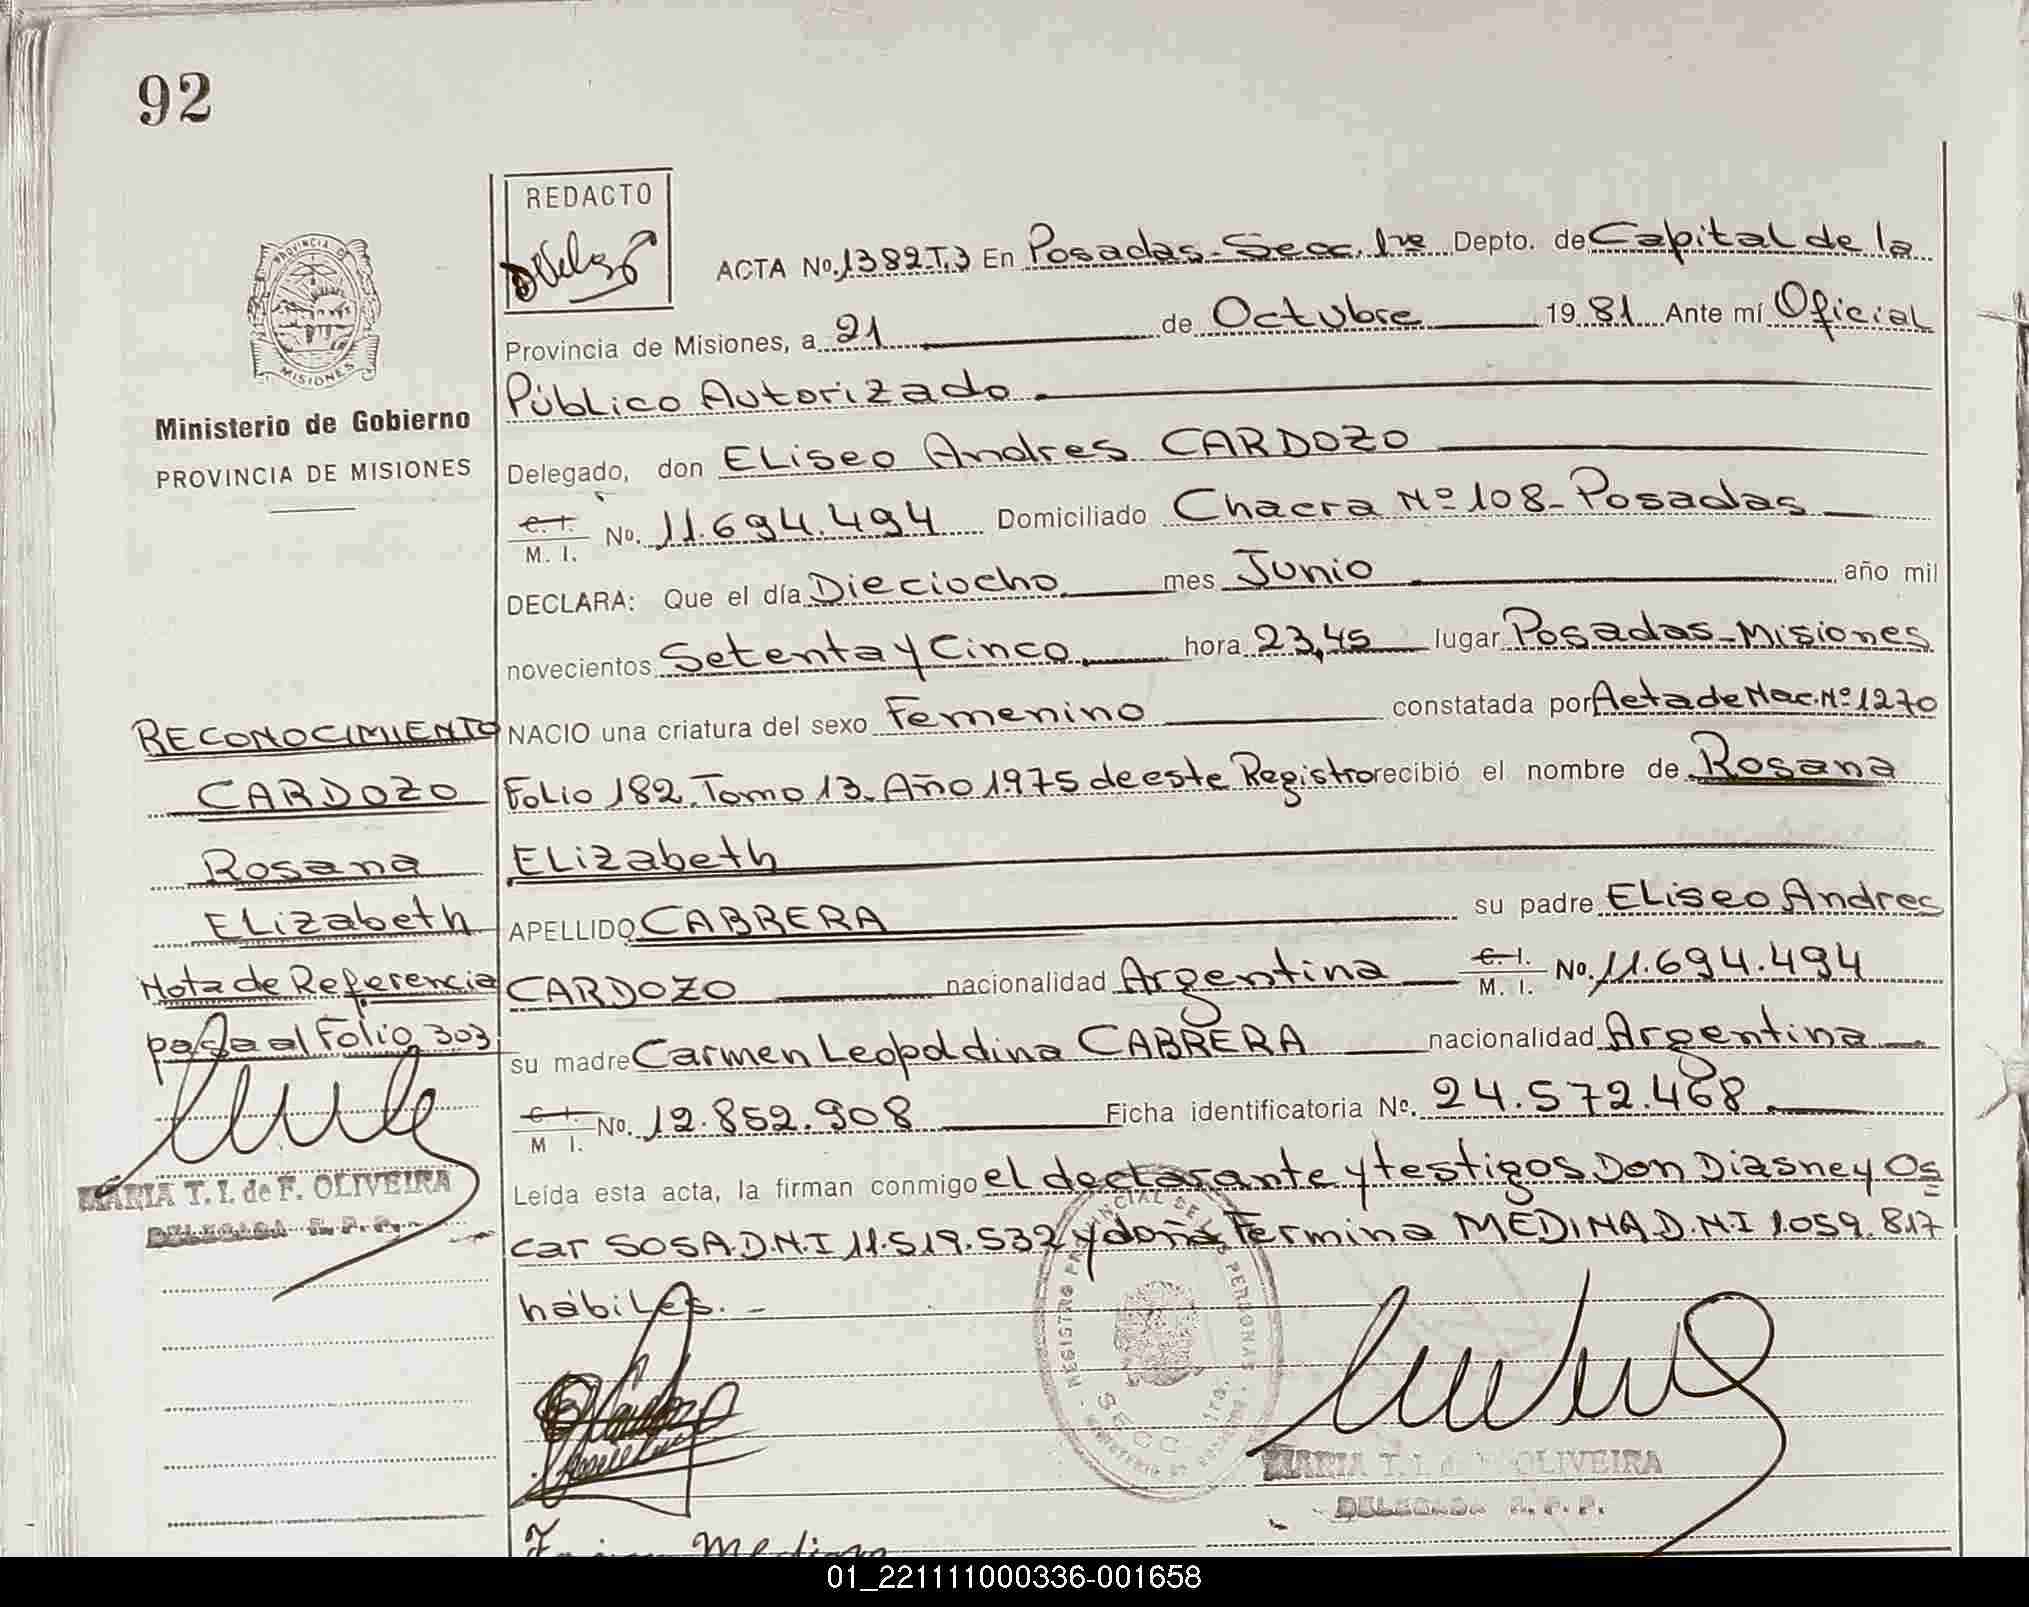 92
REDACTO
ACTA No. 1382.T.3 En Posadas-Secc. 1ra Depto. de Capital de la
Provincia de Misiones, a 21 de Octubre 19 81 Ante mí Oficial
Público Autorizado
Delegado, don ELiseo Andres CARDOZO
C. I.
M. I. No. 11.694.494 Domiciliado Chacra Nº 108-Posadas
DECLARA: Que el día Dieciocho mes Junio año mil
novecientos Setenta y Cinco hora 23,45 lugar Posadas-Misiones
NACIO una criatura del sexo Femenino constatada por Acta de Nac. Nº 1270
Folio 182. Tomo 13. Año 1975 de este Registro recibió el nombre de Rosana
ELizabeth
APELLIDO CABRERA su padre ELiseo Andres
CARDOZO nacionalidad Argentina C. I.
M. I. No. 11.694.494
su madre Carmen Leopoldina CABRERA nacionalidad Argentina
C. I.
M I. No. 12.852.908 Ficha identificatoria No. 24.572.468
Leída esta acta, la firman conmigo el declarante y testigos Don Diasney Os
car SOSA.D.N.I 11.519.532 y doña Fermina MEDINA.D.N.I 1.059.817
hábiles.-
PROVINCIA DE
MISIONES
Ministerio de Gobierno
PROVINCIA DE MISIONES
RECONOCIMIENTO
CARDOZO
Rosana
ELizabeth
Nota de Referencia
pasa al Folio 303
MARIA T. I. de F. OLIVEIRA
DELEGADA R. P. P.
REGISTRO PROVINCIAL DE LAS PERSONAS
SECC. 1ra.
MARIA T. I. de F. OLIVEIRA
DELEGADA R. P. P.
Medina
01_221111000336-001658